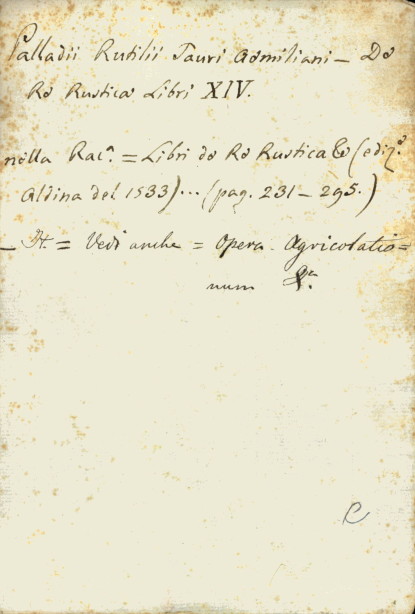 Palladii Rutilii Tauri Aemiliani — De
Re Rustica Libri XIV.
nella Rac.ª = Libri de Re Rustica &c (ediz.e
Aldina del 1533)... (pag. 231 — 295.)
— It. = Vedi anche = Opera Agricolatio=
num
C